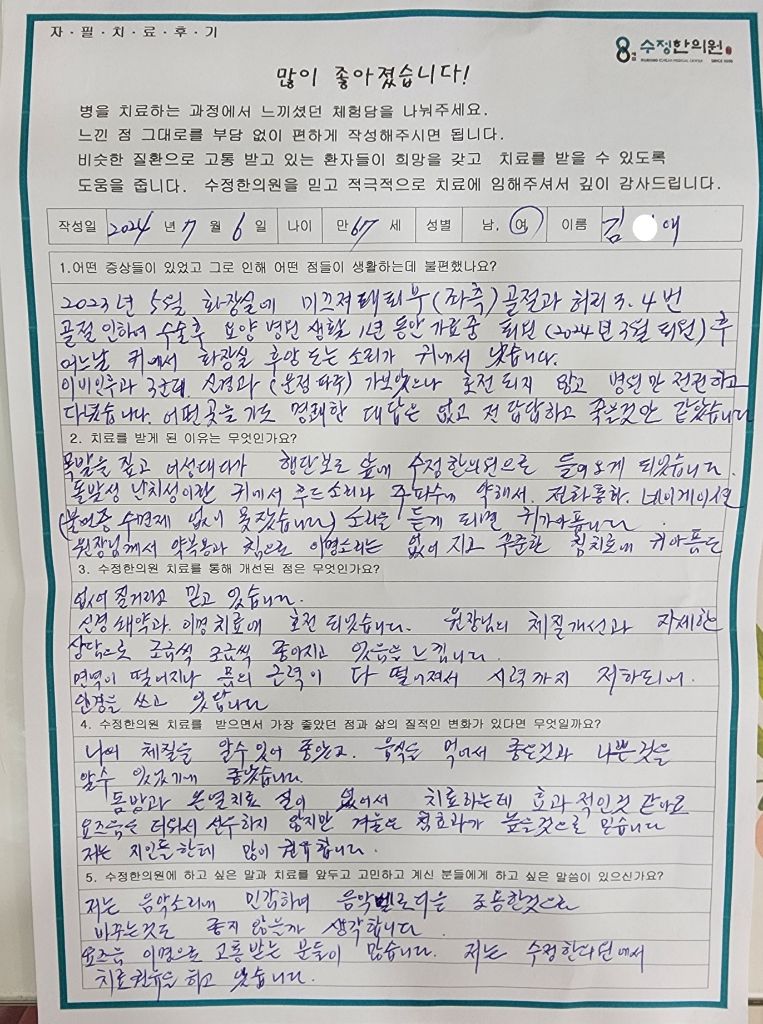 자·필·치·료·후·기
수정한의원
SINCE
많이 좋아졌습니다!
병을 치료하는 과정에서 느끼셨던 체험담을 나눠주세요.
느낀 점 그대로를 부담 없이 편하게 작성해주시면 됩니다.
비슷한 질환으로 고통 받고 있는 환자들이 희망을 갖고 치료를 받을 수 있도록
도움을 줍니다. 수정한의원을 믿고 적극적으로 치료에 임해주셔서 깊이 감사드립니다.
작성일 2024 년 7 월 6 일 나이 만 67 세 성별 남, 여 이름 김 애
1.어떤 증상들이 있었고 그로 인해 어떤 점들이 생활하는데 불편했나요?
2023년 5월 화장실에 미끄져 대퇴부(좌측)골절과 허리 3.4번
골절 인하여 수술후 요양 병원 생활 1년 동안 가료중 퇴원(2024년 3월 퇴원)후
어느날 귀에서 화장실 후안 도는 소리가 귀에서 났습니다.
이비인후과 3군데. 신경과 가보았으나 호전 되지 않고 병원만 전전하고
다녔습니다. 어떤 곳을 가도 명쾌한 대답은 없고 전 답답하고 죽을것만 같았습니다
2. 치료를 받게 된 이유는 무엇인가요?
목발을 짚고 서성대다가 횡단보도 앞에 수정한의원으로 들어오게 되었습니다.
돌발성 난치성이란 귀에서 후드소리와 주파수에 약해서. 전화통화. 네이게이션
(불면증 수면제 없이 못잤습니다) 소리를 듣게 되면 귀가아픕니다.
원장님께서 약복용과 침으로 이명소리는 없어지고 꾸준한 침치료에 귀아픔도
3. 수정한의원 치료를 통해 개선된 점은 무엇인가요?
없어질거라고 믿고 있습니다.
신경 쇠약과. 이명치료에 호전 되었습니다. 원장님의 체질개선과 자세한
상담으로 조금씩 조금씩 좋아지고 있음을 느낍니다.
면역이 떨어지니 몸의 근력이 다 떨어져서 시력까지 저하되어.
안경을 쓰고 있답니다
4. 수정한의원 치료를 받으면서 가장 좋았던 점과 삶의 질적인 변화가 있다면 무엇일까요?
나의 체질을 알수있어 좋았고. 음식을 먹어서 좋은것과 나쁜것을
알수 있었기에 좋았습니다.
돔방과 온열치료 질이 없어서 치료하는데 효과적인것 같아요
요즈음은 더워서 선수하지 않지만 겨울은 침효과가 높을것으로 믿습니다
저는 지인들한테 많이 권유합니다.
5. 수정한의원에 하고 싶은 말과 치료를 앞두고 고민하고 계신 분들에게 하고 싶은 말씀이 있으신가요?
저는 음악소리에 민감하며 음악멜로디을 조용한것으로
바꾸는것도 좋지 않을까 생각합니다.
요즈음 이명으로 고통받는 분들이 많습니다. 저는 수정한의원에서
치료권유을 하고 있습니다.